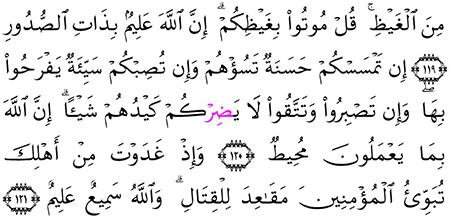 مِنَ ٱلْغَيْظِ ۚ قُلْ مُوتُوا۟ بِغَيْظِكُمْ ۗ إِنَّ ٱللَّهَ عَلِيمٌۢ بِذَاتِ ٱلصُّدُورِ
﴿١١٩﴾ إِن تَمْسَسْكُمْ حَسَنَةٌ تَسُؤْهُمْ وَإِن تُصِبْكُمْ سَيِّئَةٌ يَفْرَحُوا۟
بِهَا ۖ وَإِن تَصْبِرُوا۟ وَتَتَّقُوا۟ لَا يَضِرْكُمْ كَيْدُهُمْ شَيْـًٔا ۗ إِنَّ ٱللَّهَ
بِمَا يَعْمَلُونَ مُحِيطٌ ﴿١٢٠﴾ وَإِذْ غَدَوْتَ مِنْ أَهْلِكَ
تُبَوِّئُ ٱلْمُؤْمِنِينَ مَقَـٰعِدَ لِلْقِتَالِ ۗ وَٱللَّهُ سَمِيعٌ عَلِيمٌ ﴿١٢١﴾